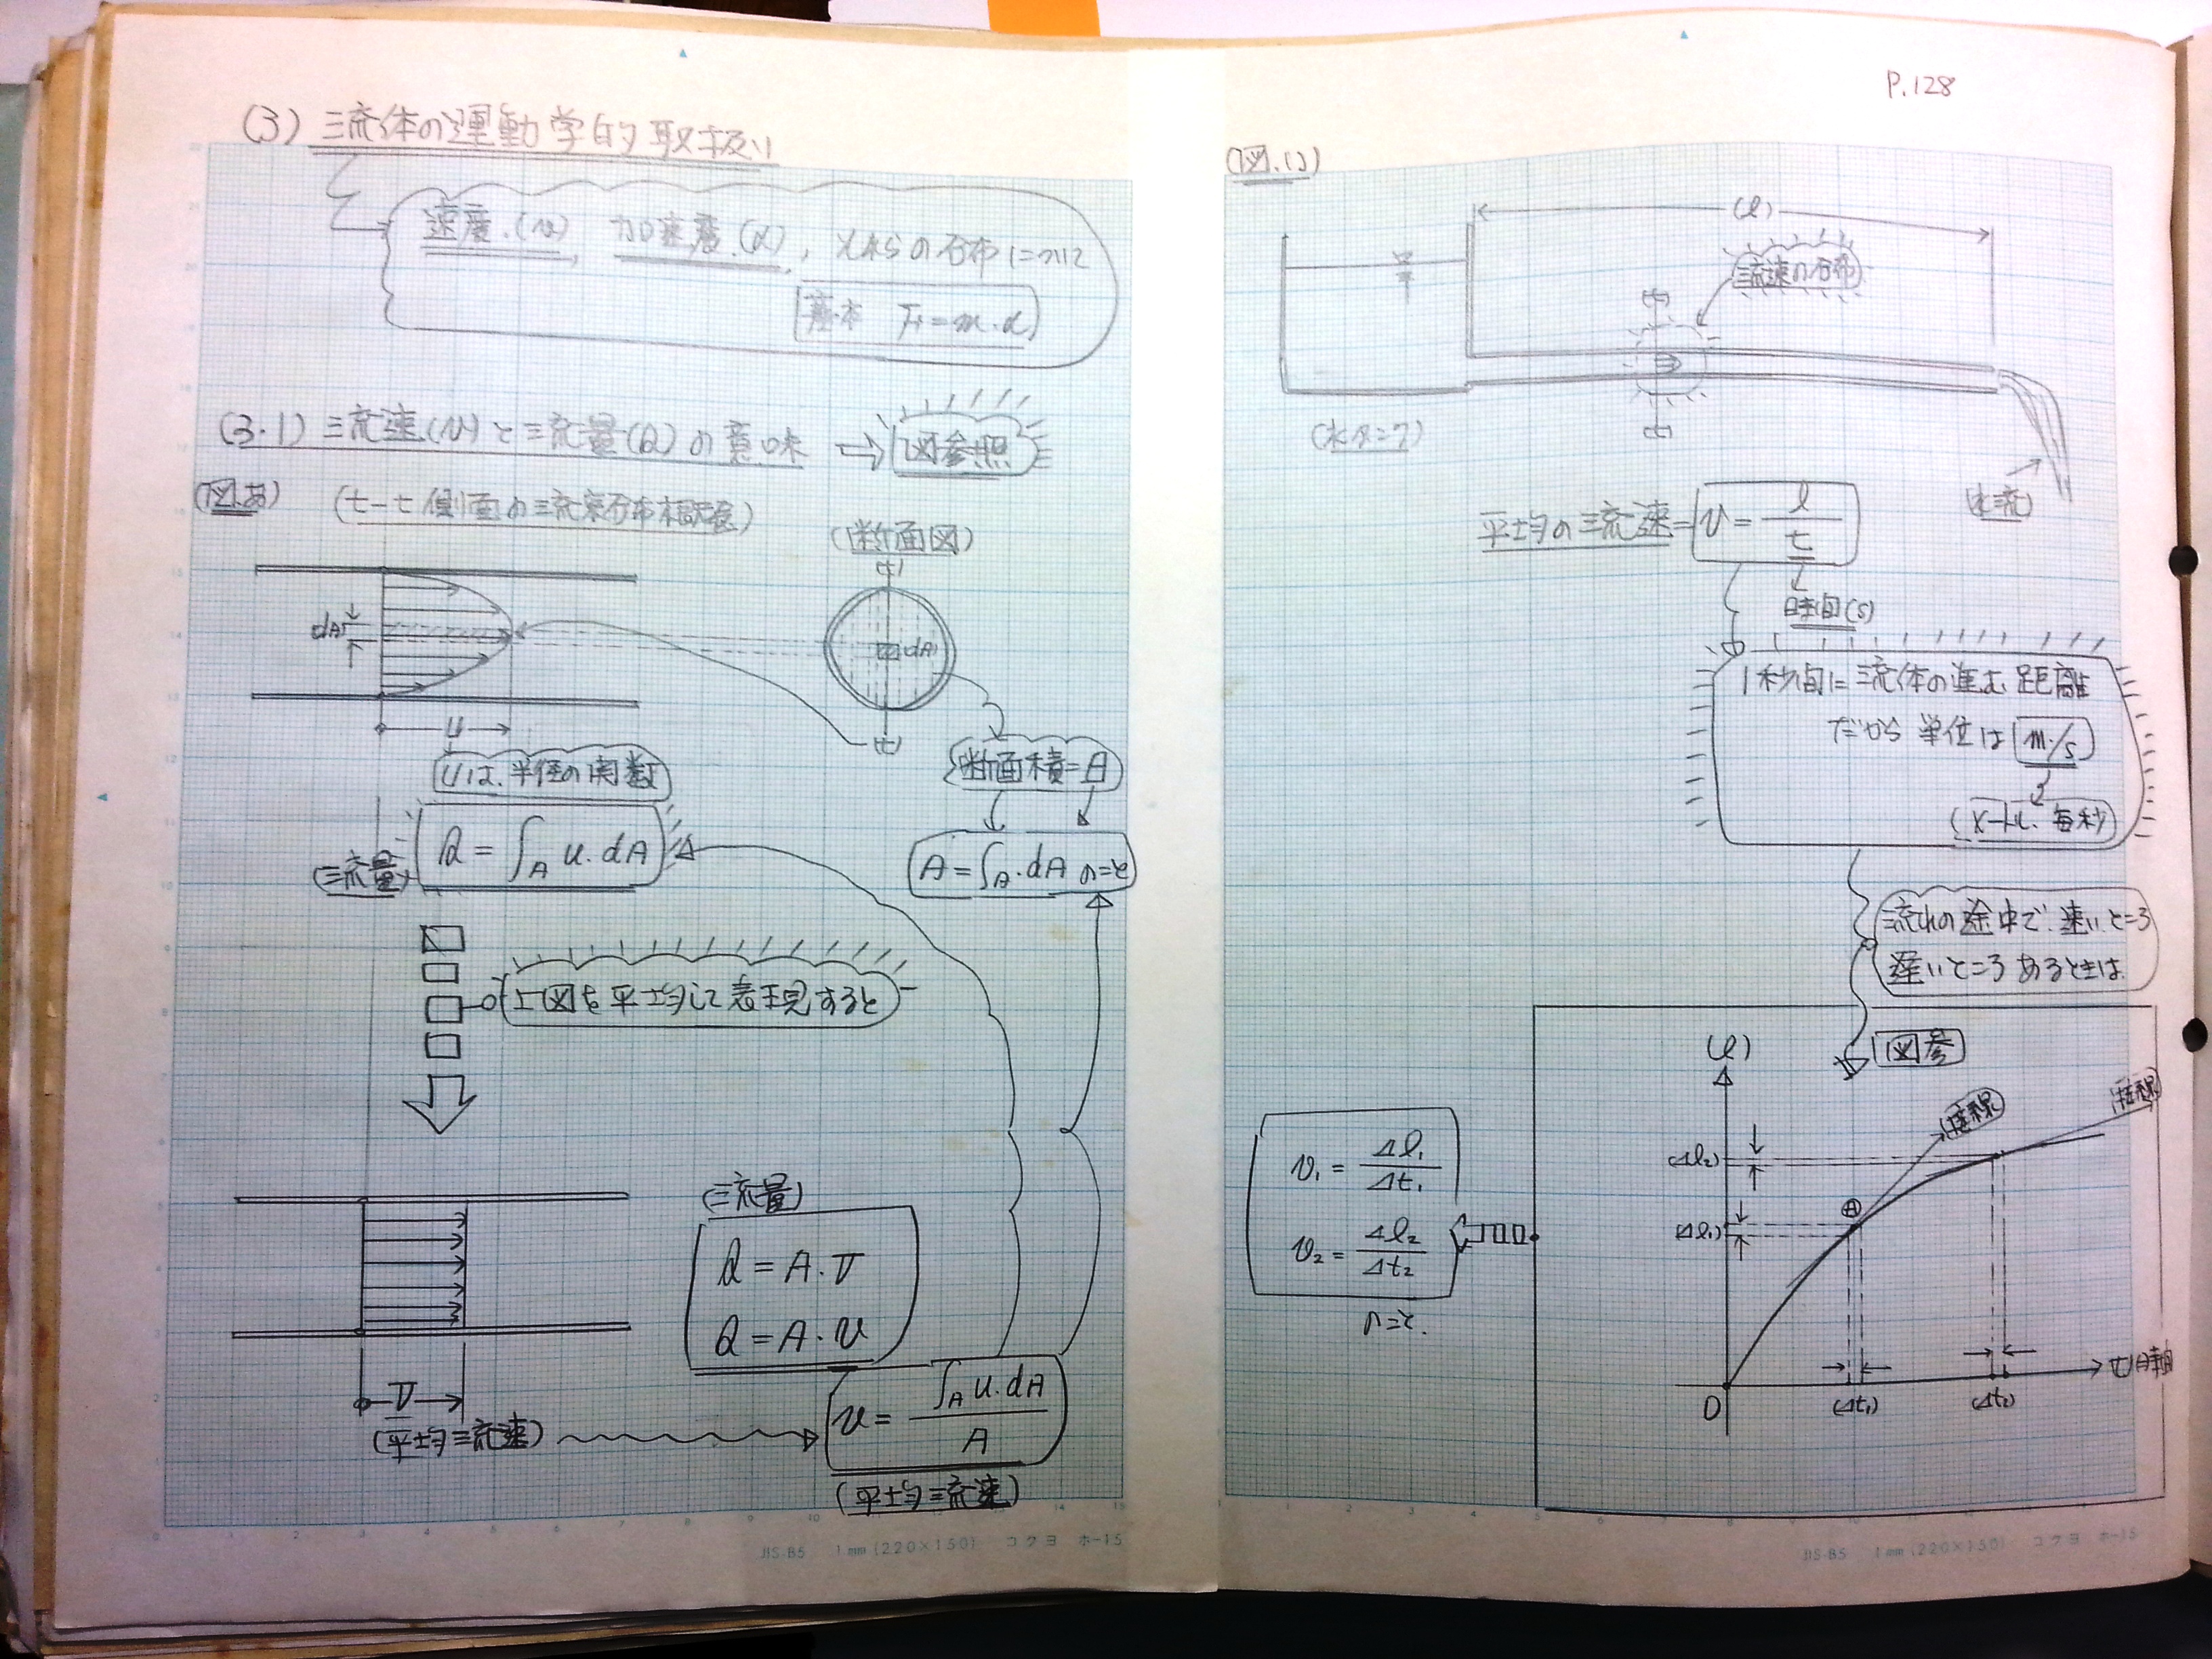 (3) 流体の運動学的取扱い
速度.(v), 加速度.(α), それらの分布について
基本 F=m.α
(3.1) 流速(v)と流量(Q)の意味 ⇒ 図参照
(図.あ) (t-t側面の流束分布模様)
(断面図)
(t)
dA
dA
(t)
u
uは.半径の関数
断面積=A
(流量) Q = ∫A u.dA
A = ∫A.dA のこと
上図を平均して表現すると
(流量)
Q = A.V
Q = A.v
V
(平均流速)
v = ∫A u.dA / A
(平均流速)
JIS-B5 1mm(220×150) コクヨ ホ-15
P.128
(図.い)
(l)
流速の分布
(t)
(t)
(水そう)
(水流)
平均の流速= v = l / t
時間(s)
1秒間に流体の進む距離
だから 単位は m/s
(メートル.毎秒)
流れの途中で.速いところ
遅いところあるときは
図参
(l)
接線
接線
(Δl₂)
A
(Δl₁)
v₁ = Δl₁ / Δt₁
v₂ = Δl₂ / Δt₂
のこと.
(t)時間
0
(Δt₁)
(Δt₂)
JIS-B5 1mm(220×150) コクヨ ホ-15